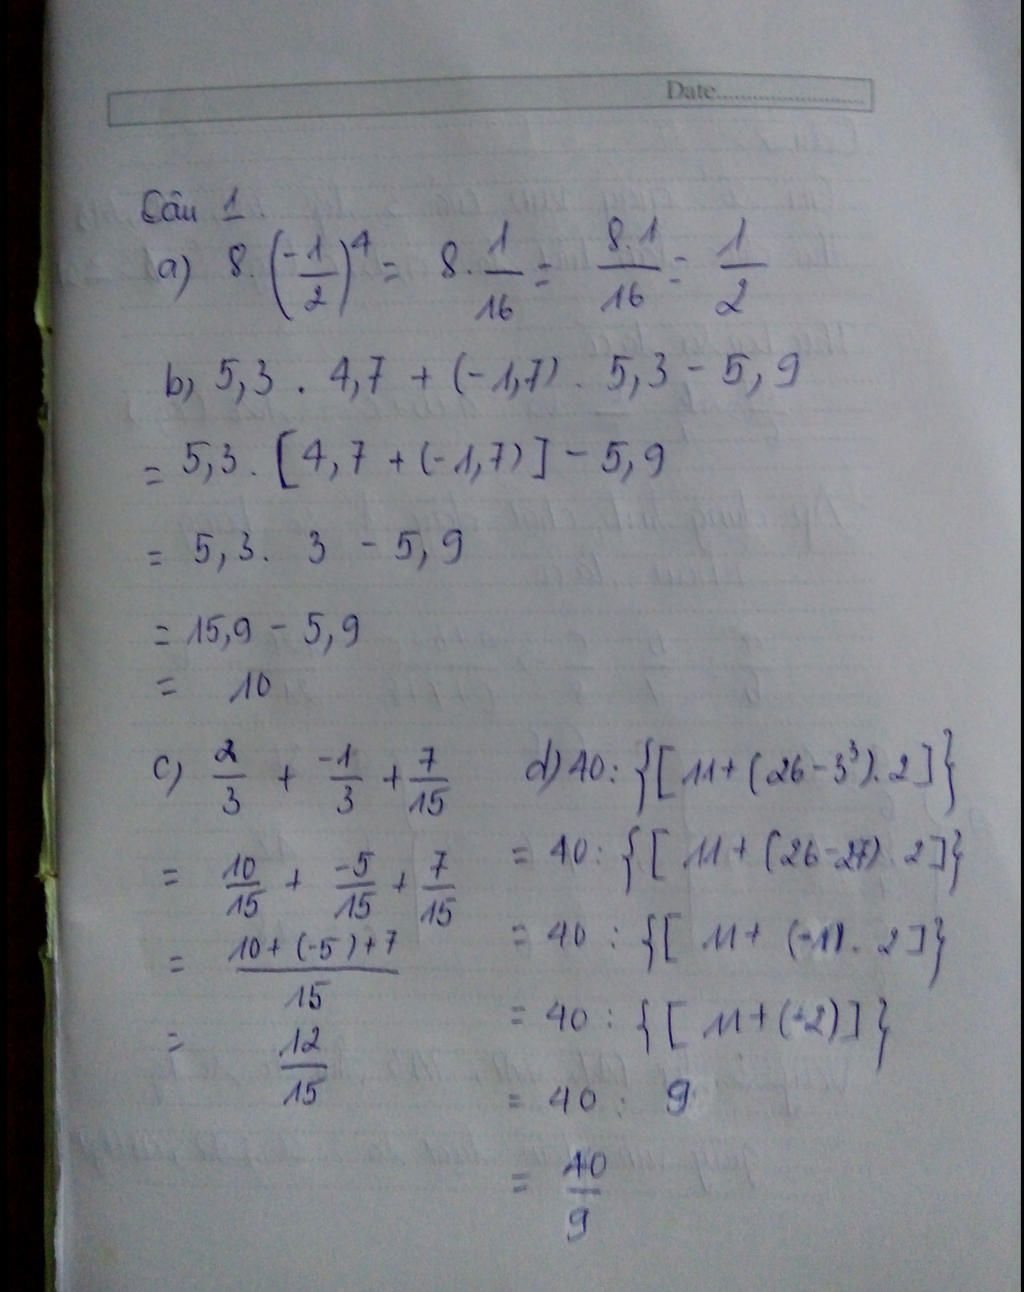 Date
Câu 1
a) 8.(-1/2)^4 = 8.1/16 = 8.1/16 = 1/2
b) 5,3 . 4,7 + (-1,7) . 5,3 - 5,9
= 5,3 . [4,7 + (-1,7)] - 5,9
= 5,3 . 3 - 5,9
= 15,9 - 5,9
= 10
c) 2/3 + -1/3 + 7/15
= 10/15 + -5/15 + 7/15
= 10 + (-5) + 7 / 15
= 12/15
d) 40 : {[11 + (26 - 3^3). 2]}
= 40 : {[11 + (26 - 27) . 2]}
= 40 : {[11 + (-1) . 2]}
= 40 : {[11 + (-2)]}
= 40 : 9
= 40/9